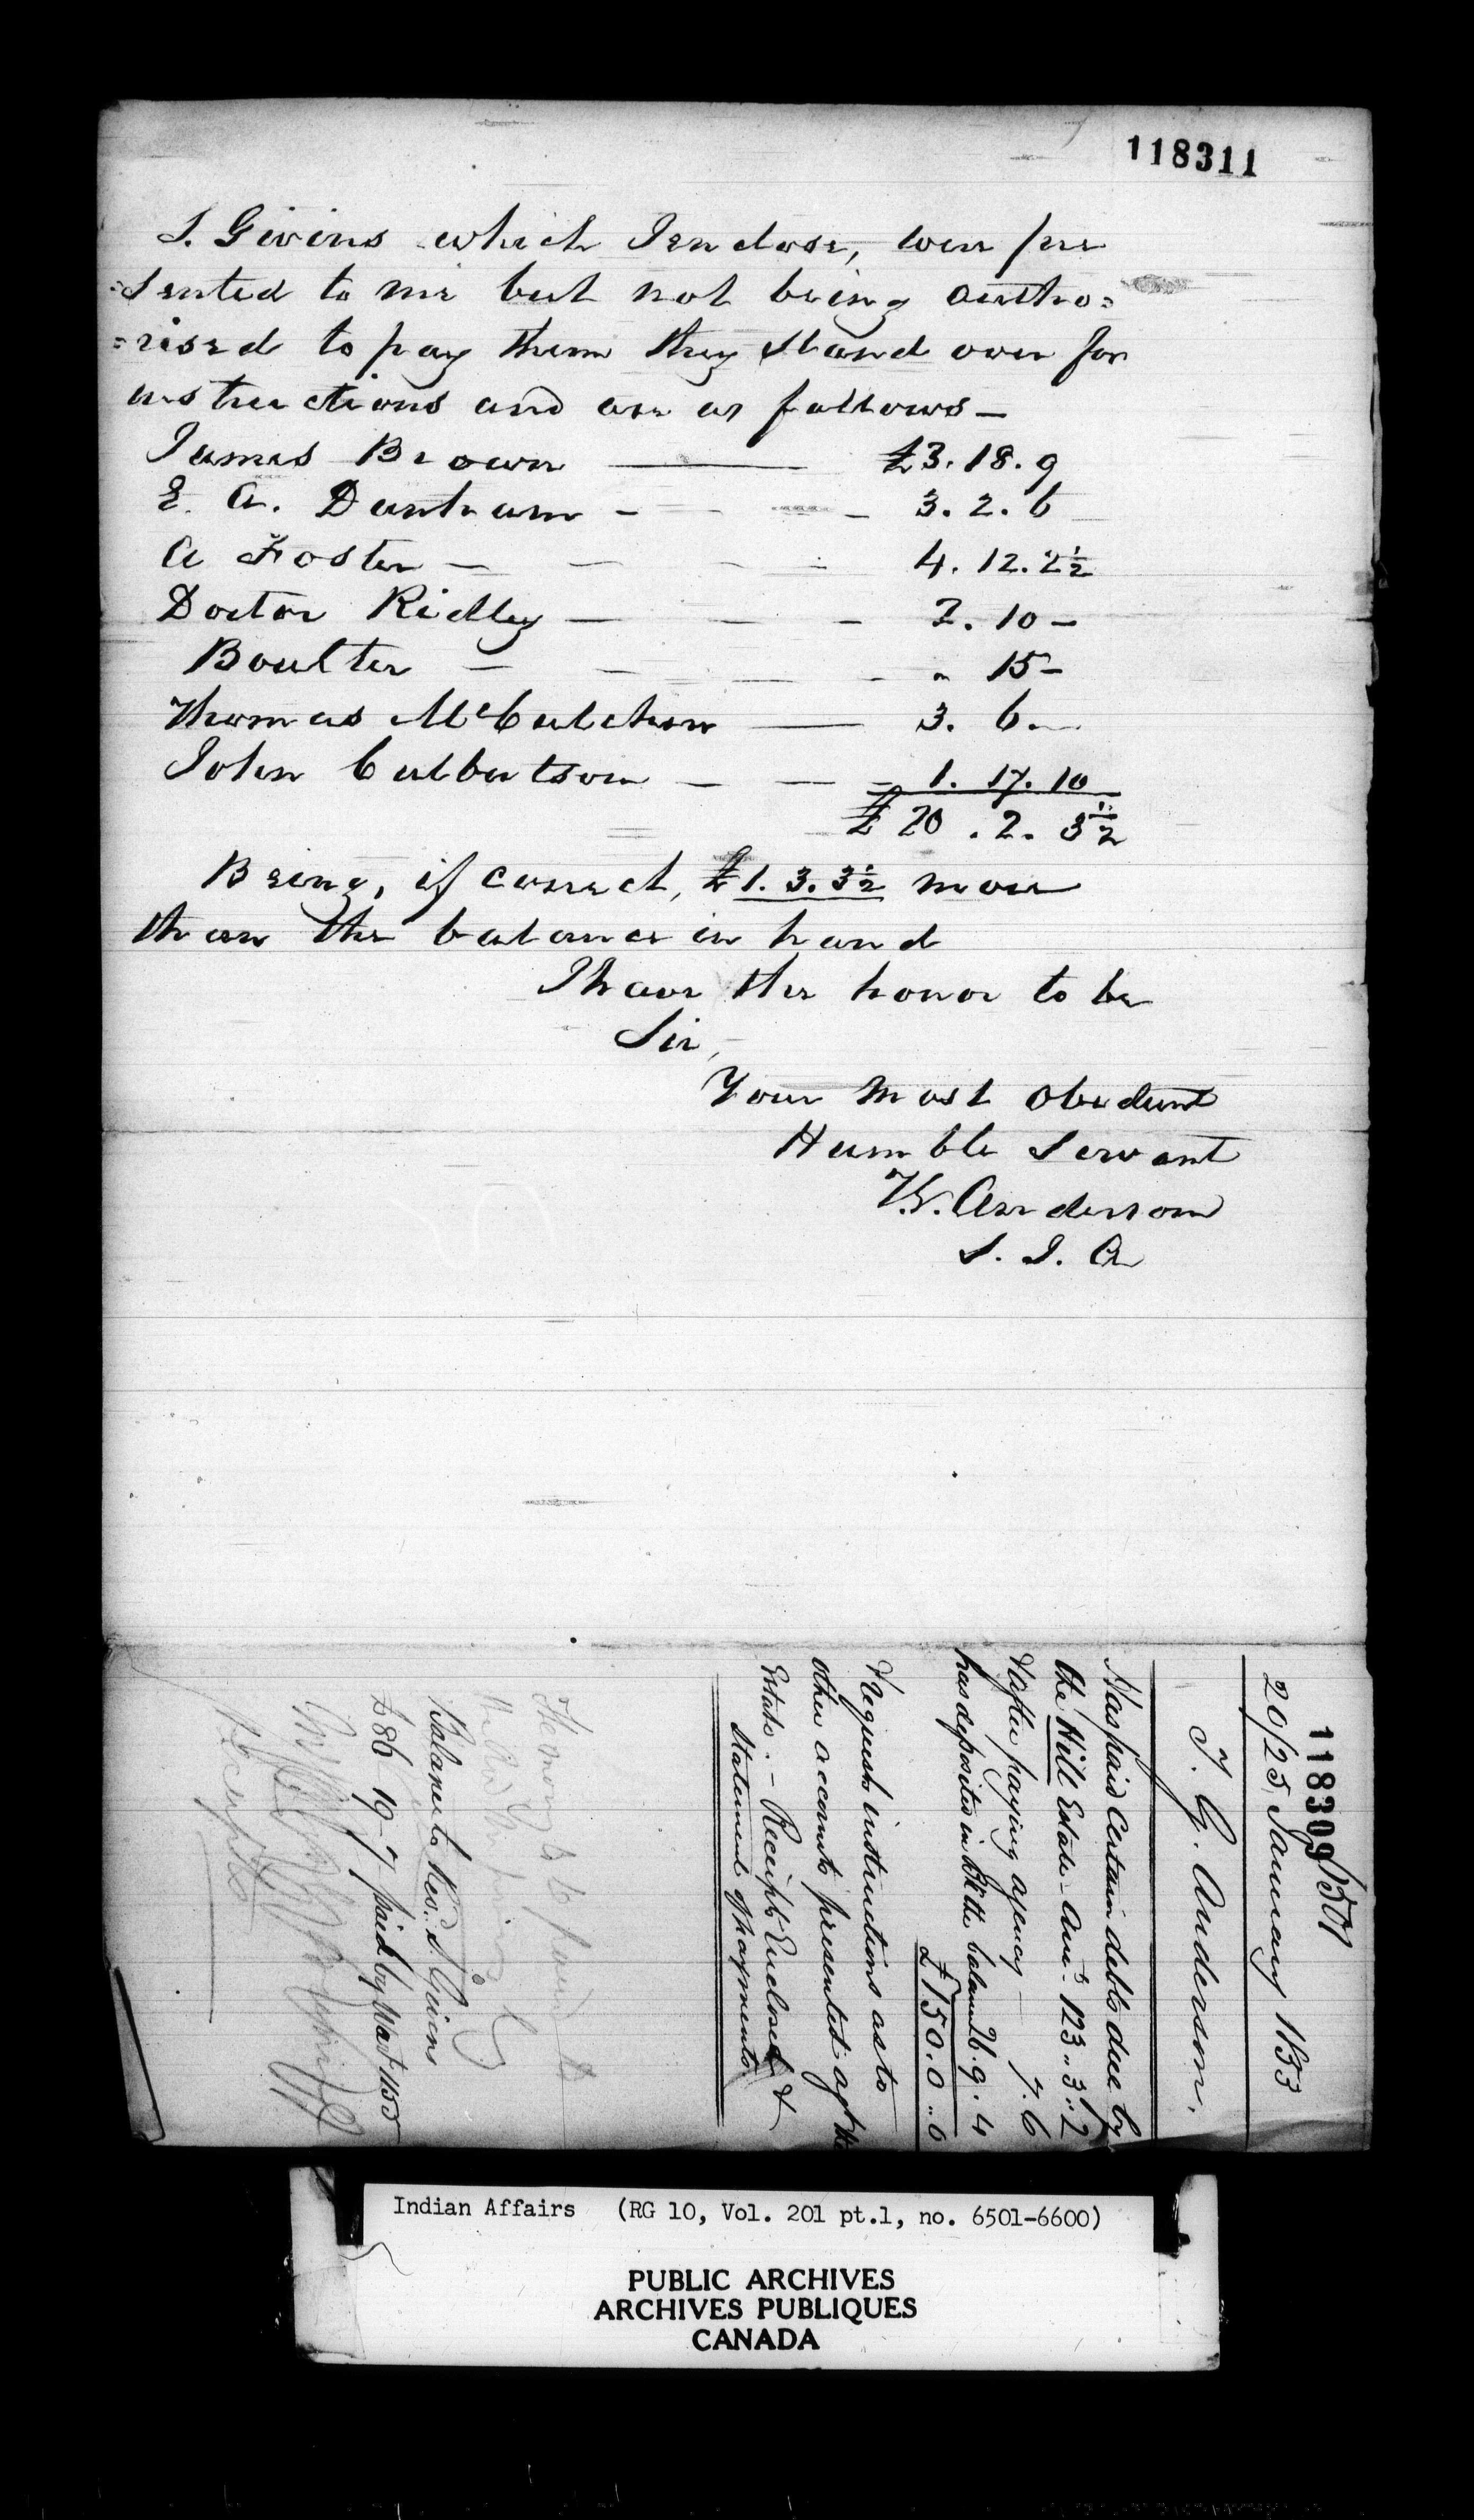 118311
S. Givins which I enclose, were pre
=sented to me but not being autho=
=rised to pay them they stand over for
instructions and are as follows —
James Brown — £3. 18. 9
E. A. Dunham - - - 3. 2. 6
A Foster — — - - 4. 12. 2½
Doctor Ridley — — - 2. 10 -
Boulter — — — - " 15 -
Thomas McCutcheon — 3. 6. —
John Culbertson — — - 1. 17. 10
£ 20 . 2. 3½
Being, if correct, £1. 3. 3½ more
than the balance in hand
I have the honor to be
Sir,
Your most obedient
Humble Servant
T.G. Anderson
S. I. A
118309
20/25 January 1853
T. G. Anderson.
Has paid Certain debts due by
the Hill Estate Amt. 123 .. 3 .. 2
& after paying agency — 7. 6
has deposited in Bk the balance 26. 9. 4
£150. 0 .. 0
& Requests instructions as to
other accounts presented agt the
Estate. - Receipts Enclosed &
Statement of payments.
The money to be paid to
Balance to Revd. S. Givins
£86 19 - 7 paid by Wart 1155
receipts
Indian Affairs (RG 10, Vol. 201 pt.1, no. 6501-6600)
PUBLIC ARCHIVES
ARCHIVES PUBLIQUES
CANADA